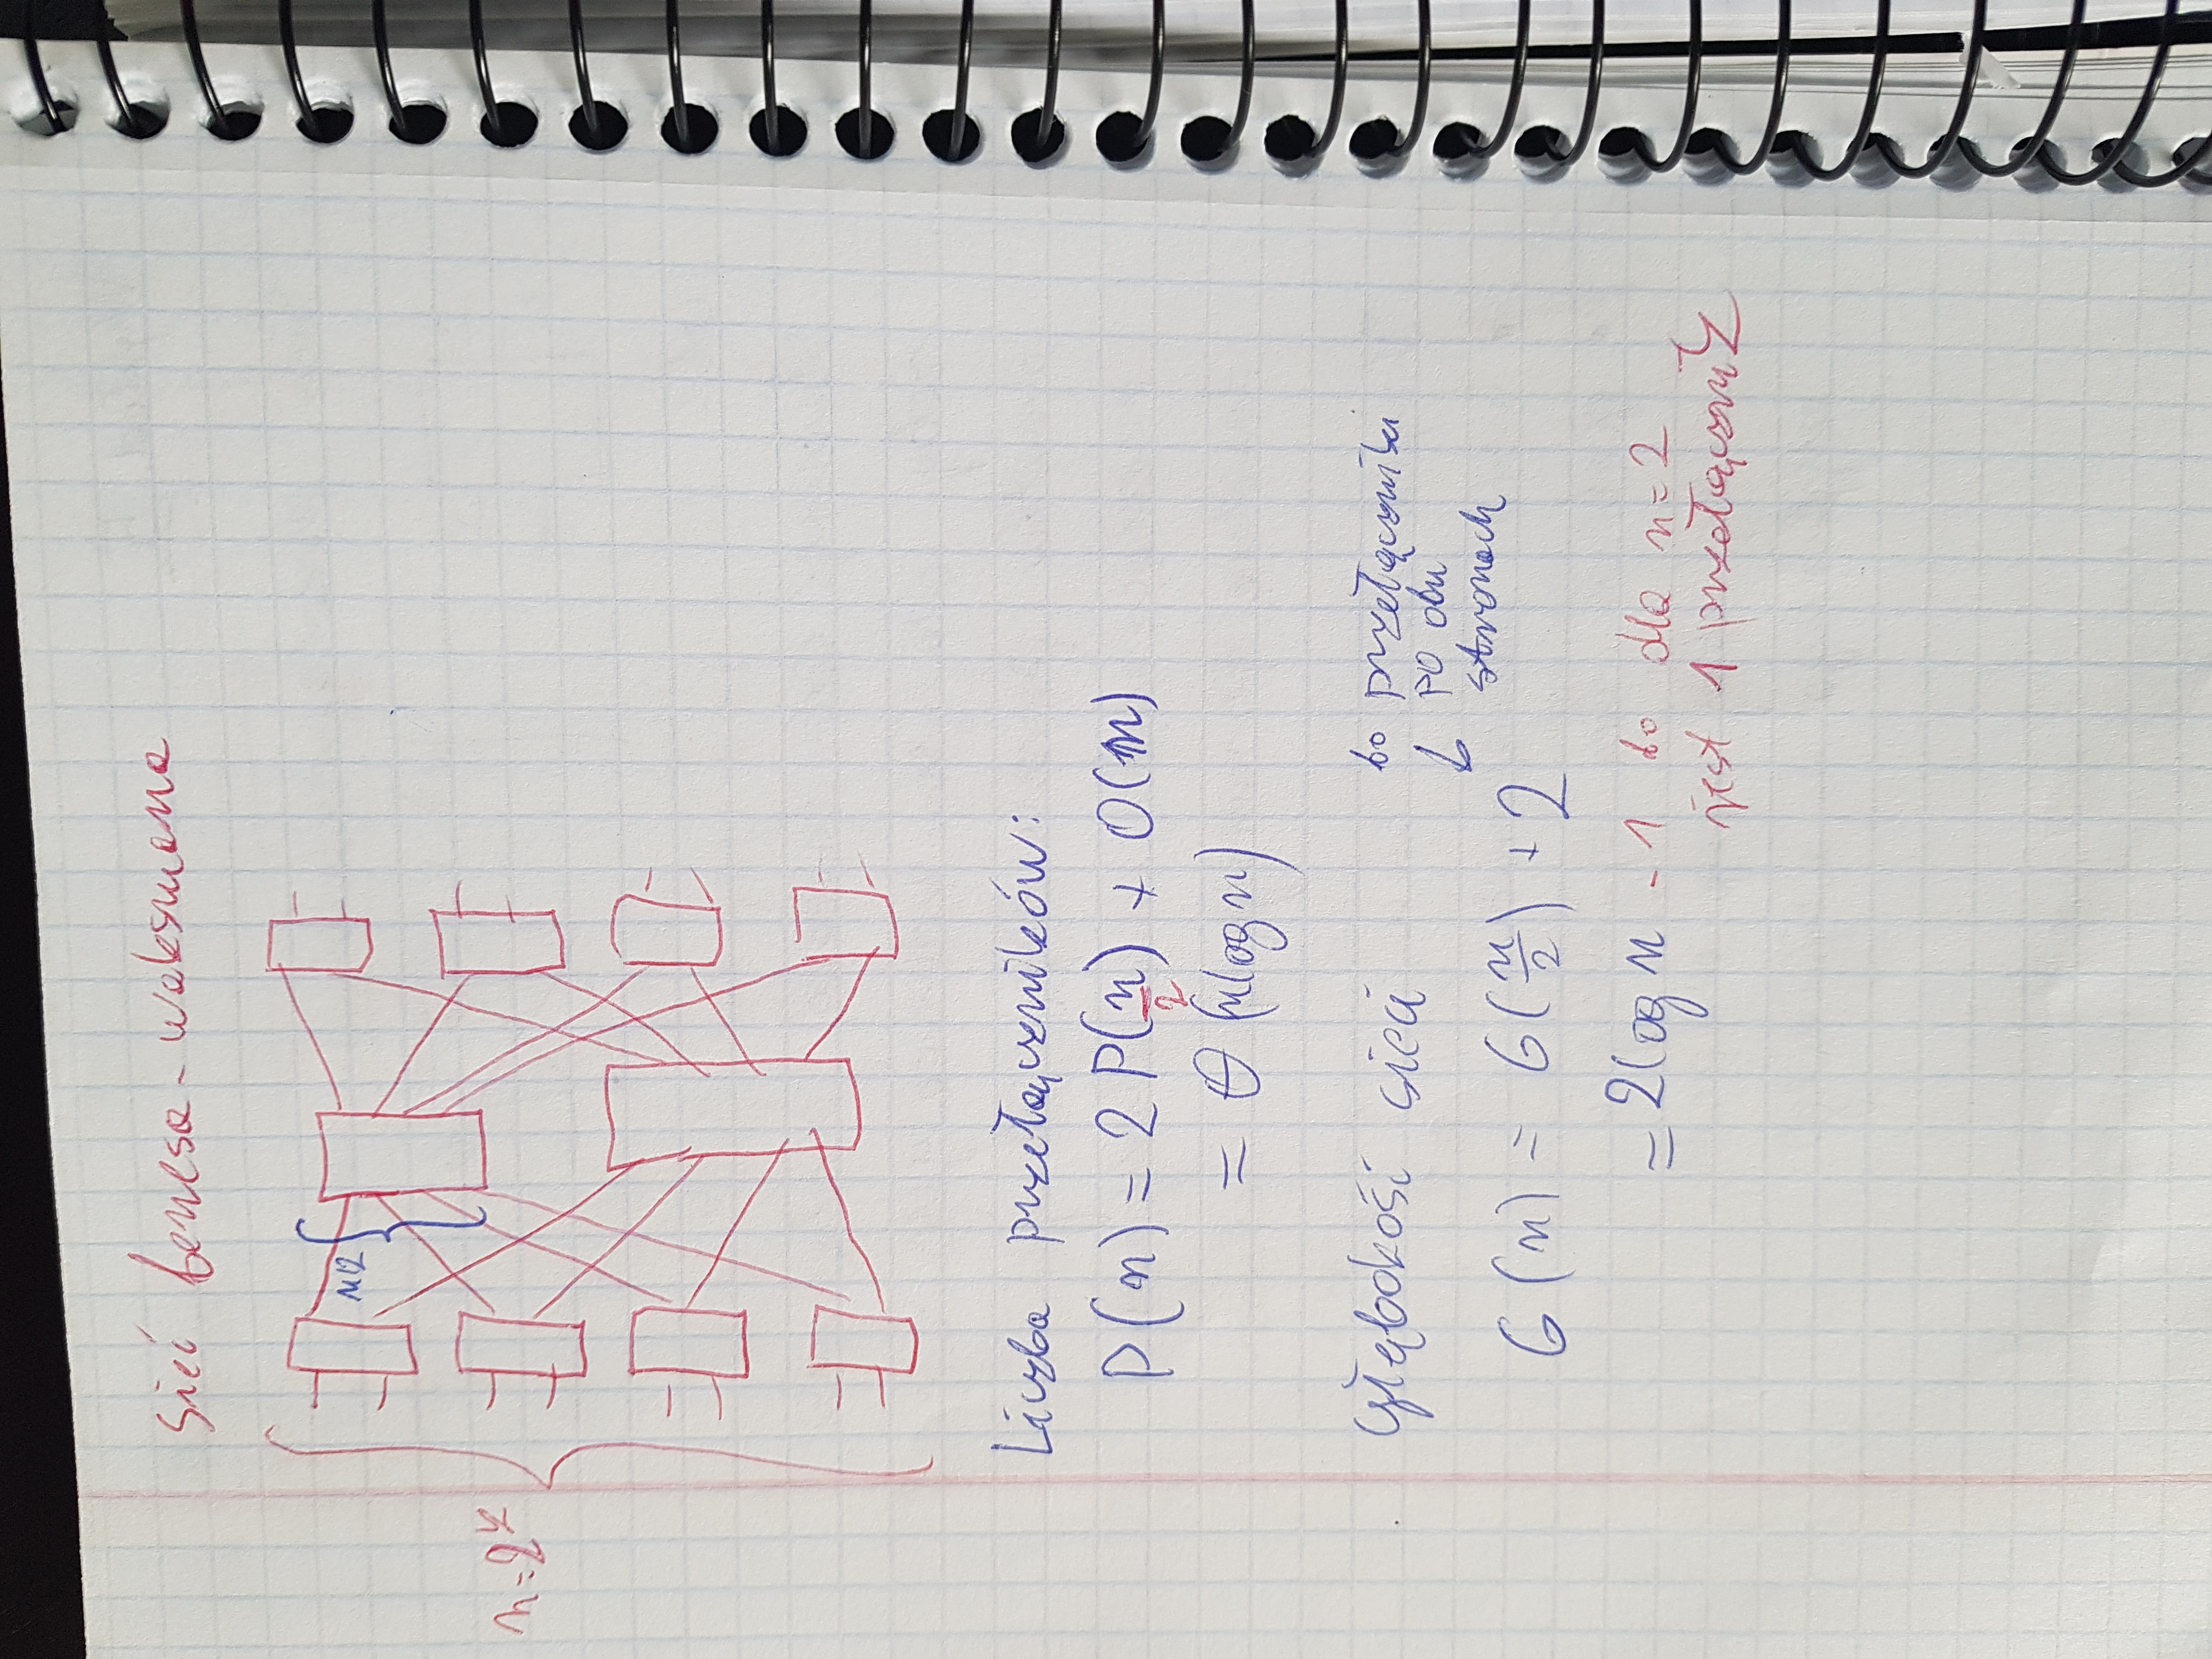 sieć benesa-waksmana
n/2
n=2^k
Liczba przełączników:
P(n) = 2P(n/2) + O(n)
= Θ(nlogn)
głębokość sieci
bo przełączniki
po obu
stronach
G(n) = G(n/2) + 2
= 2logn - 1 bo dla n=2
jest 1 przełącznik